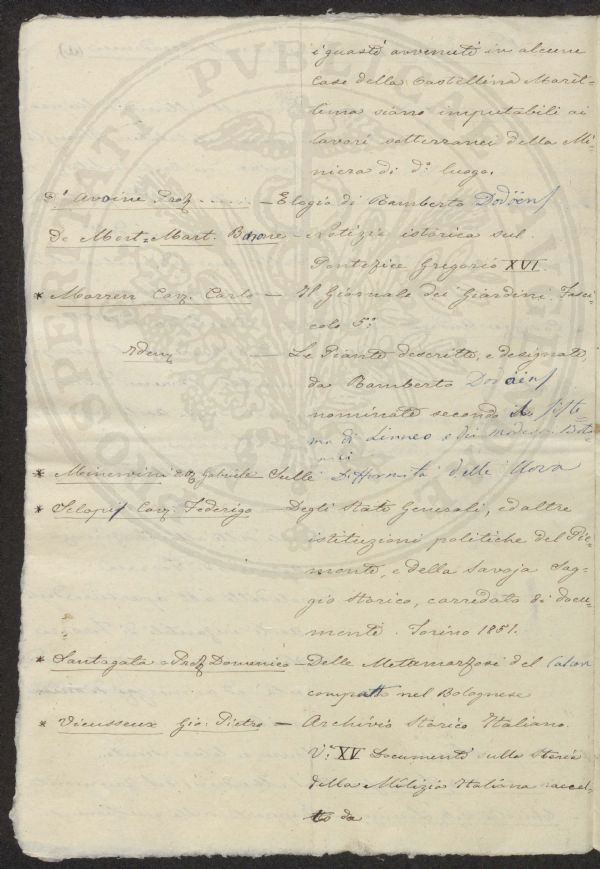 i guasti avvenuti in alcune
case della Castellina Marit-
tima siano imputabili ai
lavori sotterranei della Mi-
niera di d.º luogo.
D'Avoine Prof. ...... — Elogio di Ramberto Dodöens
De Mort=Mart. Barone — Notizia istorica sul
Pontefice Gregorio XVI
* Morren Cav. Carlo — Il Giornale dei Giardini Fasci-
colo 5º
Idem — Le Piante descritte, e designate,
da Ramberto Dodöens
nominate secondo il siste-
ma di Linneo e dei moderni Bota-
nici
* Minervini D. Gabriele Sulle Difformità delle Uova
* Sclopis Cav. Federigo — Degli Stati Generali, ed altre
istituzioni politiche del Pie-
monte, e della Savoja Sag-
gio Storico, corredato di docu-
menti. Torino 1851.
* Santagata Prof. Domenico — Delle Metamorfosi del Calcare
compatto nel Bolognese
* Vieusseux Gio: Pietro — Archivio Storico Italiano.
V.º XV Documenti sulla storia
della Milizia Italiana raccol-
ti da